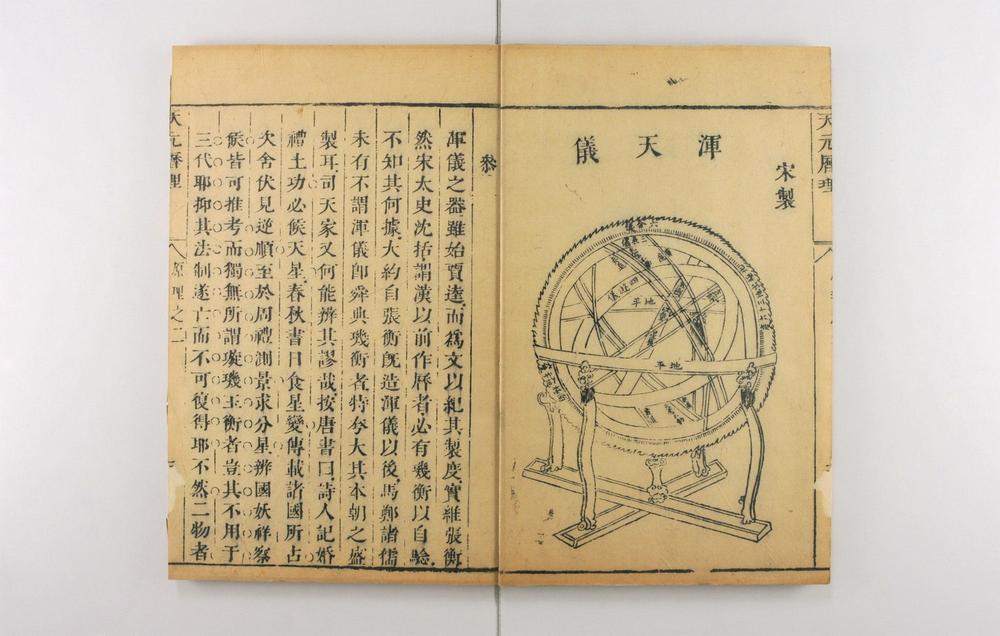 天元曆理
宋製
渾天儀
六合儀
三辰儀
四遊儀
地平
地平
叅
渾儀之器雖始賈逵而爲文以紀其製度實維張衡
然宋太史沈括謂漢以前作曆者必有璣衡以自驗
不知其何據大約自張衡旣造渾儀以後馬鄭諸儒
未有不謂渾儀卽舜典璣衡者特夸大其本朝之盛
製耳司天家又何能辨其謬哉按唐書曰詩人記婚
禮土功必候天星春秋書日食星變傳載諸國所占
次舍伏見逆順至於周禮測景求分星辨國妖祥察
候皆可推考而獨無所謂璇璣玉衡者豈其不用于
三代耶抑其法制遂亡而不可復得耶不然二物者
天元曆理
原理之二